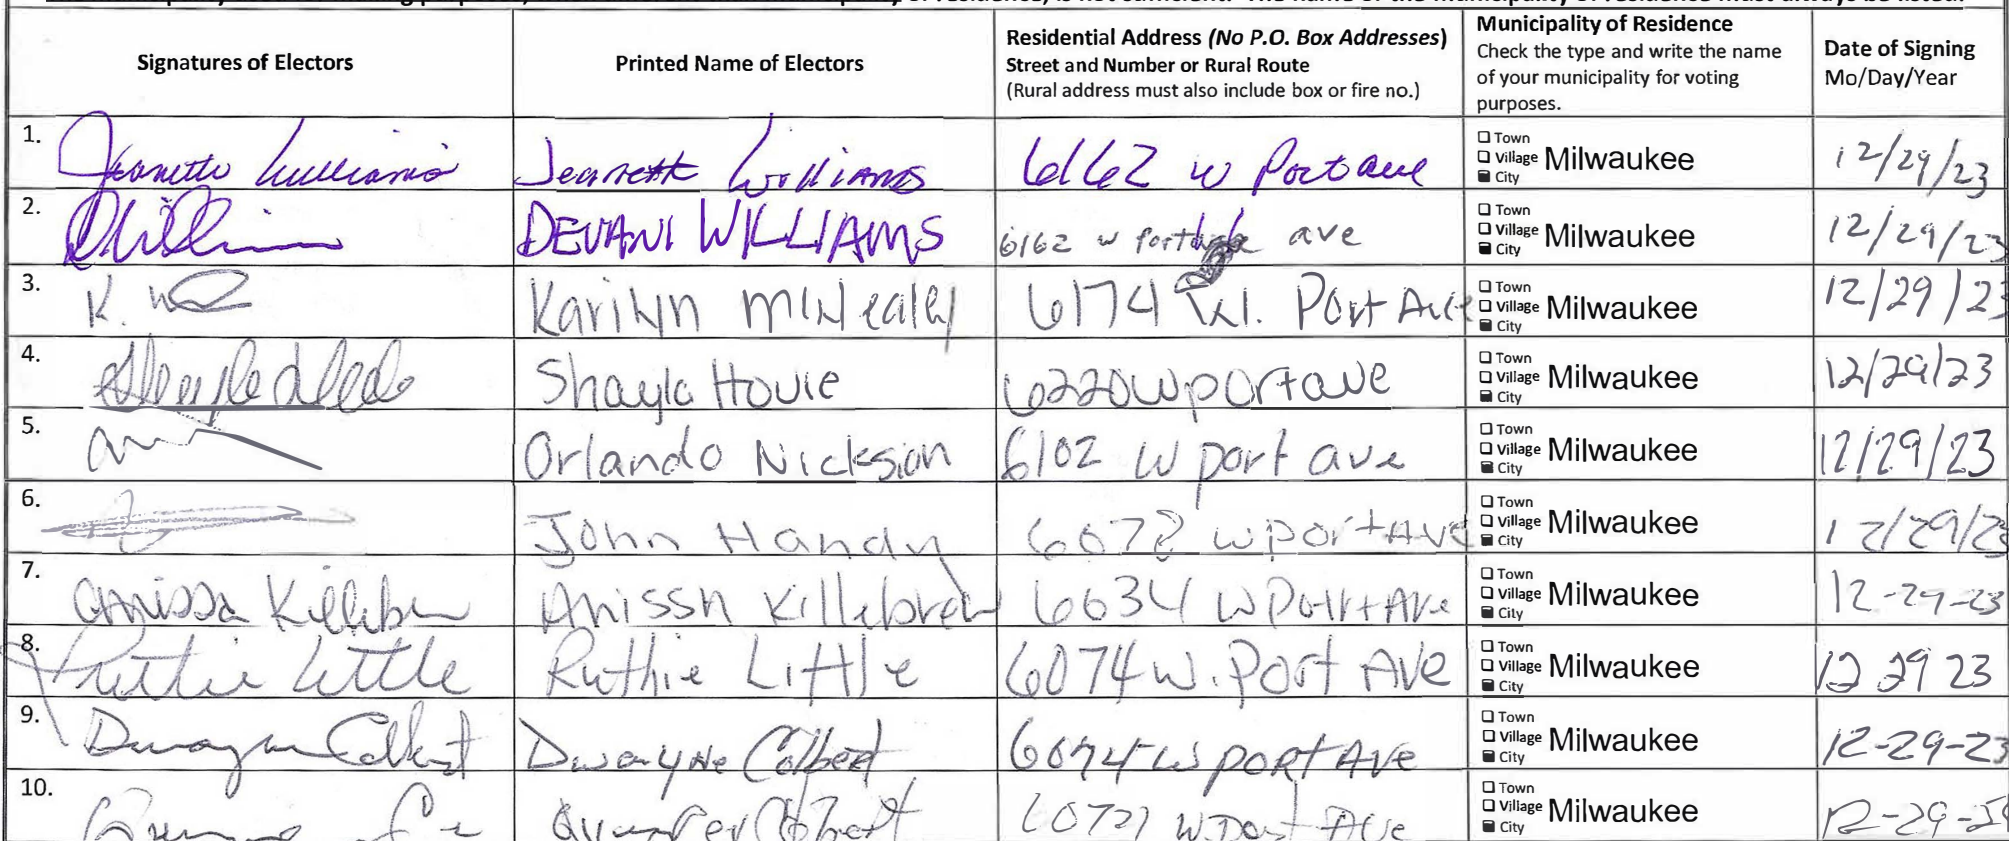 Signatures of Electors
Printed Name of Electors
Residential Address (No P.O. Box Addresses)
Street and Number or Rural Route
(Rural address must also include box or fire no.)
Municipality of Residence
Check the type and write the name
of your municipality for voting
purposes.
Date of Signing
Mo/Day/Year
1. Jeanette Williams Jeanette Williams 6162 w Port ave ☐ Town ☐ Village ☑ City Milwaukee 12/29/23
2. DEVANI WILLIAMS 6162 w ave ☐ Town ☐ Village ☑ City Milwaukee 12/29/23
3. K. Karilyn McNealey 6174 W. Port Ave ☐ Town ☐ Village ☑ City Milwaukee 12/29/23
4. Shayla Houie 6220 W port ave ☐ Town ☐ Village ☑ City Milwaukee 12/29/23
5. Orlando Nickson 6102 W port ave ☐ Town ☐ Village ☑ City Milwaukee 12/29/23
6. John Handy w port Ave ☐ Town ☐ Village ☑ City Milwaukee 12/29/23
7. Anissa Killebrew Anissa Killebrew 6034 W Port Ave ☐ Town ☐ Village ☑ City Milwaukee 12-29-23
8. Ruthie Little Ruthie Little 6074 W. Port Ave ☐ Town ☐ Village ☑ City Milwaukee 12 29 23
9. Dwayne Colbert Dwayne Colbert 6074 W PORT AVe ☐ Town ☐ Village ☑ City Milwaukee 12-29-23
10. Colbert W Port Ave ☐ Town ☐ Village ☑ City Milwaukee